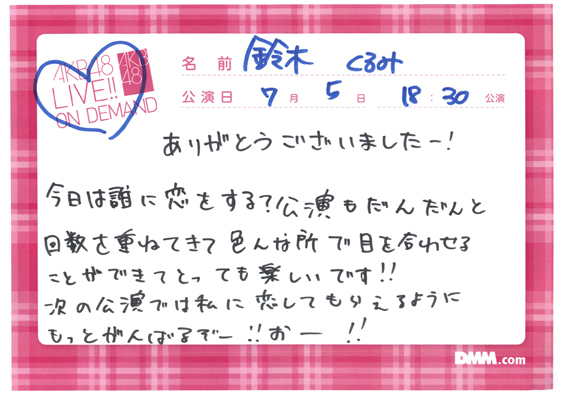 AKB48
LIVE!!
ON DEMAND
AKB
48
名 前 鈴木 くるみ
公演日 7 月 5 日 18 : 30 公演
ありがとうございましたー!
今日は誰に恋をする?公演もだんだんと
回数を重ねてきて色んな所で目を合わせる
ことができてとっても楽しいです!!
次の公演では私に恋してもらえるように
もっとがんばるぞー!!おー!!
DMM.com